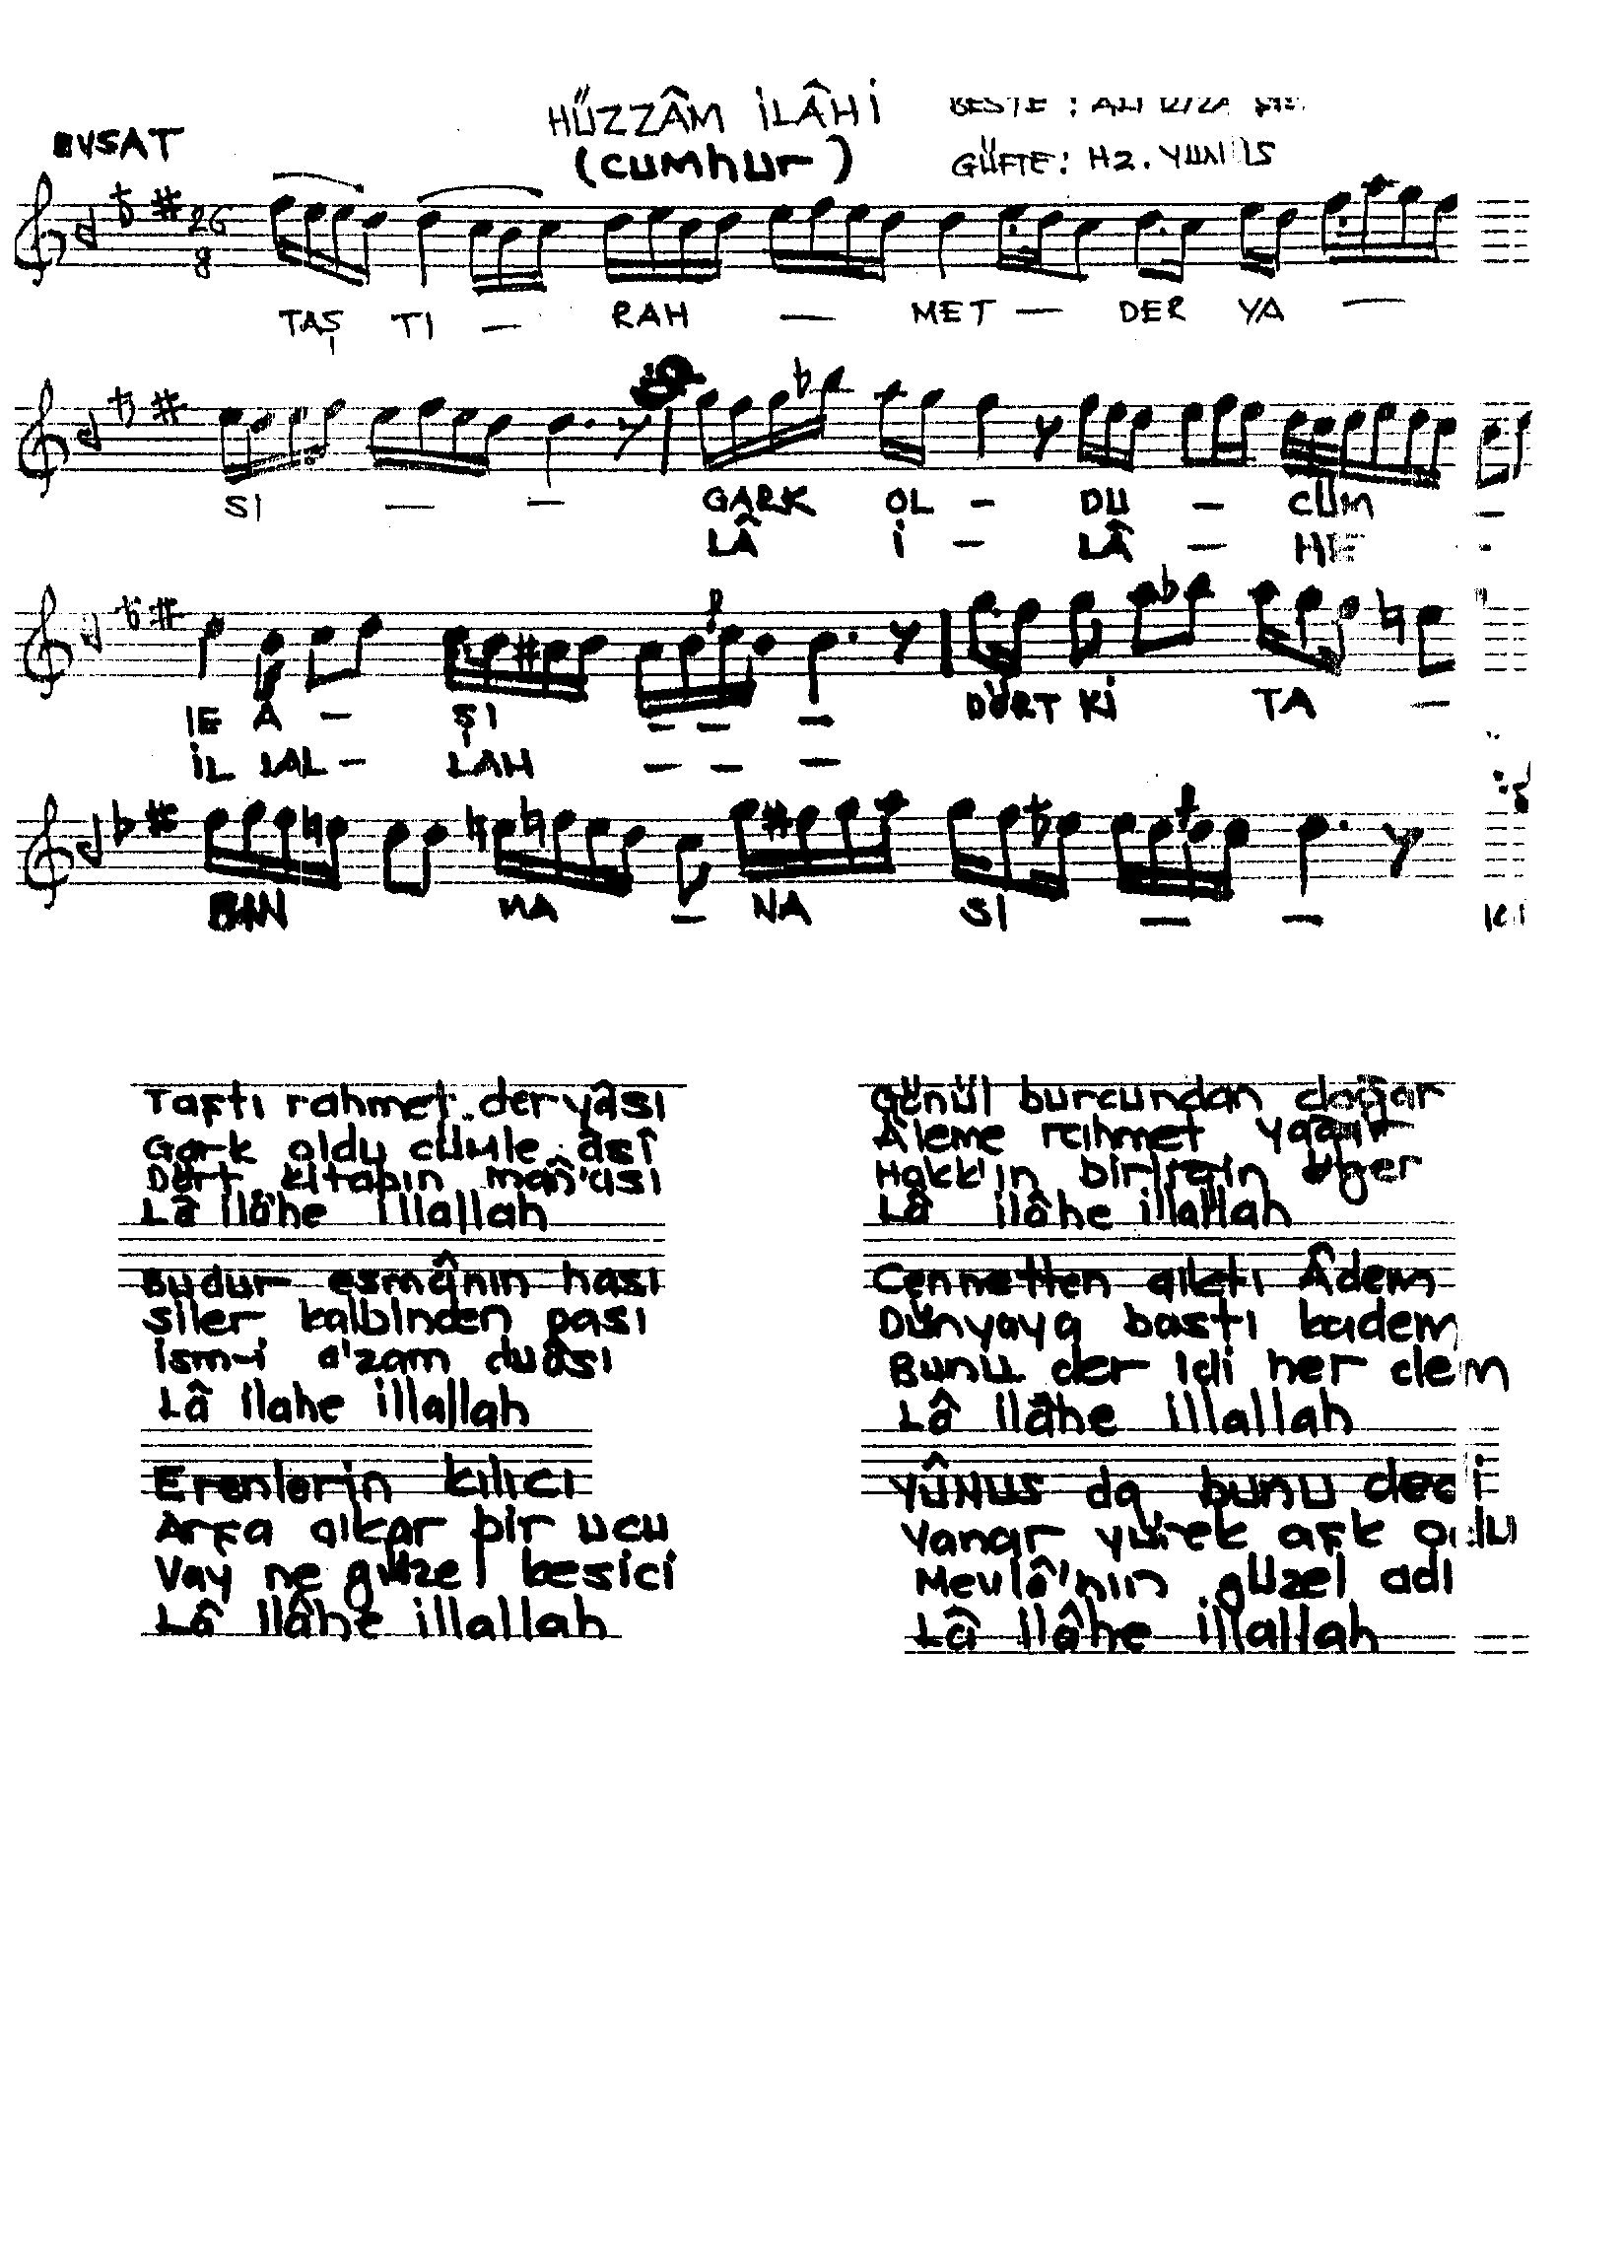 HÜZZÂM İLÂHİ
BESTE : ALİ RIZA
EVSAT
(cumhur)
GÜFTE: HZ. YUNUS
26
8
TAŞ TI — RAH — MET — DER YA —
SI — — GARK OL — DU — CÜM —
LÂ İ — LÂ — HE -
LE A — Sİ — — — DÖRT Kİ TA —
İL LAL — LAH — — —
BIN MA — NA SI — —
Taştı rahmet deryâsı
Gark oldu cümle âsî
Dört kitabın man'ası
Lâ ilâhe illallah
Budur esmânın hası
Siler kalbinden pası
İsm-i a'zam duâsı
Lâ ilahe illallah
Erenlerin kılıcı
Arşa çıkar bir ucu
Vay ne güzel kesici
Lâ ilâhe illallah
Gönül burcundan doğar
Âleme rahmet yağar
Hakk'ın birliğin
Lâ ilâhe illallah
Cennetten çıktı Âdem
Dünyaya bastı kadem
Bunu der idi her dem
Lâ ilâhe illallah
Yûnus da bunu dedi
Yanar yürek aşk odu
Mevlâ'nın güzel adı
Lâ ilâhe illallah